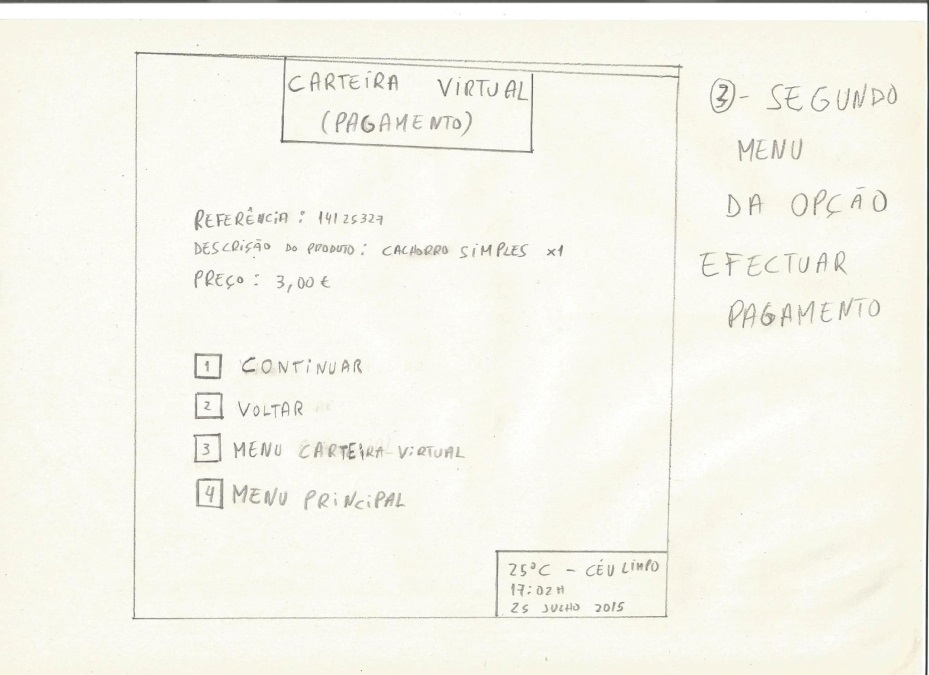 CARTEIRA VIRTUAL
(PAGAMENTO)
REFERÊNCIA : 14125327
DESCRIÇÃO DO PRODUTO : CACHORRO SIMPLES x1
PREÇO : 3,00 €
1 CONTINUAR
2 VOLTAR
3 MENU CARTEIRA VIRTUAL
4 MENU PRINCIPAL
25°C - CÉU LIMPO
17:02H
25 JULHO 2015
3 - SEGUNDO
MENU
DA OPÇÃO
EFECTUAR
PAGAMENTO